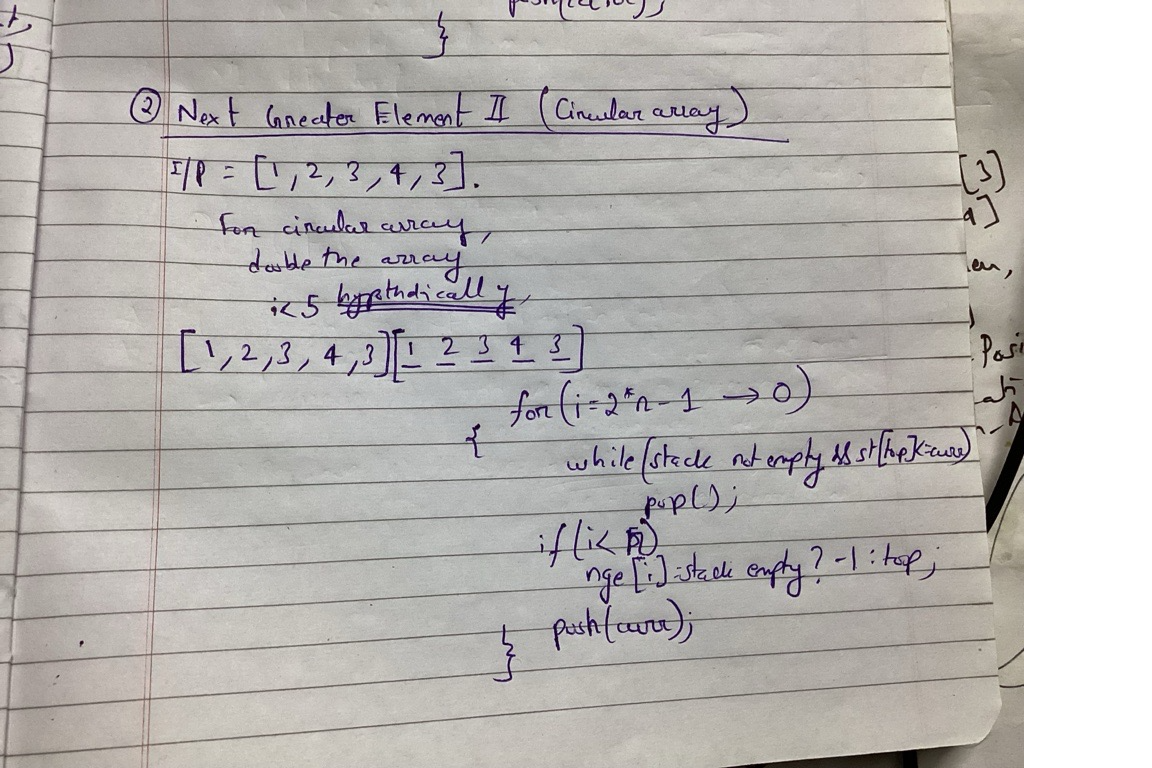 }
② Next Greater Element II (Circular array)
I/P = [1, 2, 3, 4, 3].
For circular array,
double the array
i<5 hypthdically,
[1, 2, 3, 4, 3][1 2 3 4 3]
for(i=2*n-1 → 0)
{
while(stack not empty && st[top]<=curr)
pop();
if(i< n)
nge[i]=stack empty? -1 : top;
push(curr);
}
[3]
4]
en,
Posi